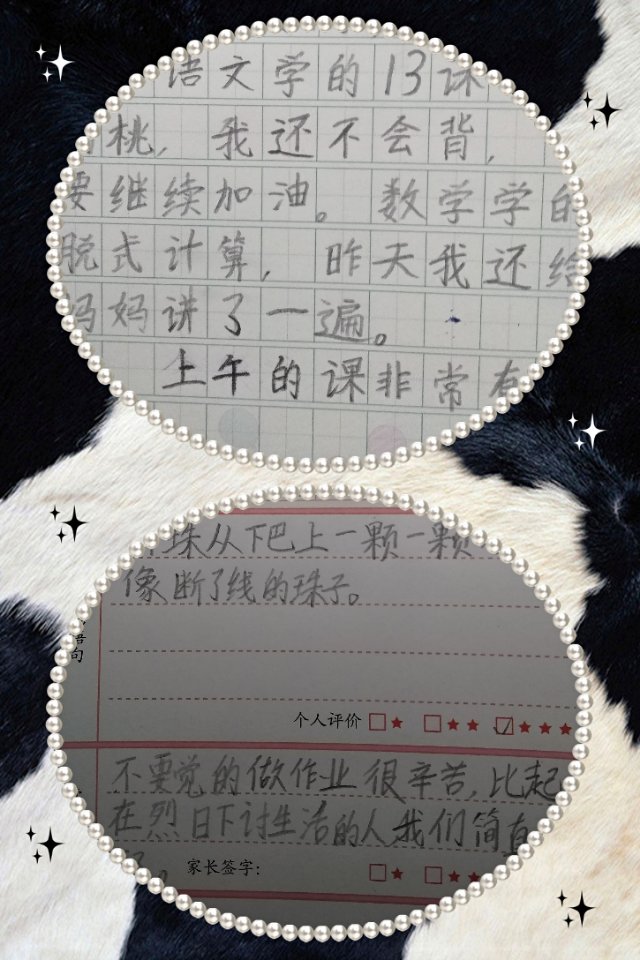 语文学的13课
桃，我还不会背，
要继续加油。数学学的
脱式计算，昨天我还给
妈妈讲了一遍。
上午的课非常有
珠从下巴上一颗一颗
像断了线的珠子。
语句
个人评价 □★ □★★ ☑★★★
不要觉的做作业很辛苦，比起
在烈日下讨生活的人我们简直
家长签字： □★ □★★